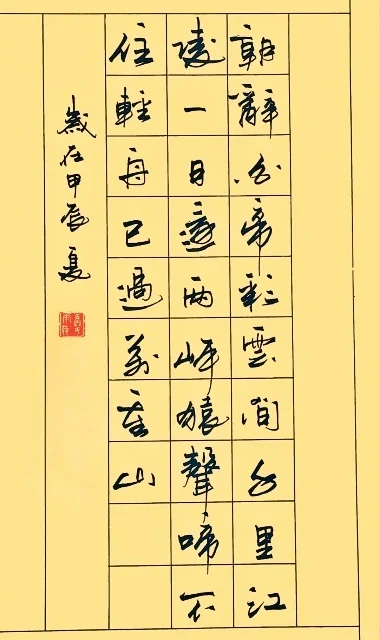 朝辭白帝彩雲間千里江
陵一日還兩岸猿聲啼不
住輕舟已過萬重山
歲在甲辰夏